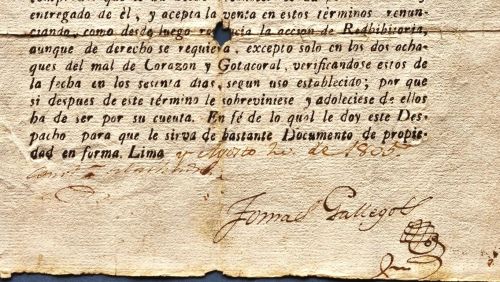 entregado de él, y acepta la venta en estos términos renun-
ciando, como desde luego renuncia la accion de Redhibitoria,
aunque de derecho se requiera, excepto solo en los dos acha-
ques del mal de Corazon y Gotacoral, verificandose estos de
la fecha en los sesenta dias, segun uso establecido; por que
si despues de este término le sobreviniese y adoleciese de ellos
ha de ser por su cuenta. En fé de lo qual le doy este Des-
pacho para que le sirva de bastante Documento de propie-
dad en forma. Lima y Agosto de 1805.
Tomas Gallegos